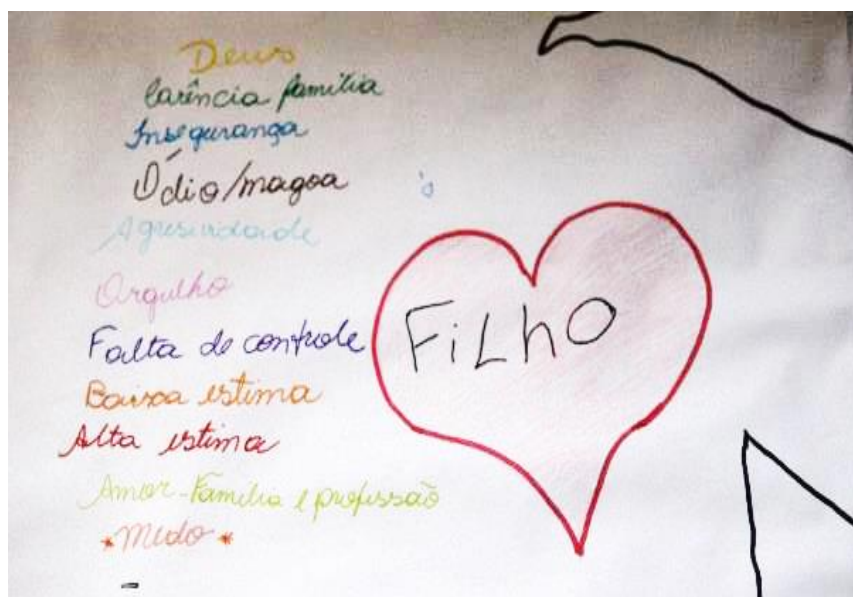 Deus
Carência familia
Insegurança
Ódio/magoa
Agressividade
Orgulho
Falta de controle
Baixa estima
Alta estima
Amor-Família e profissão
*Medo*
FiLhO